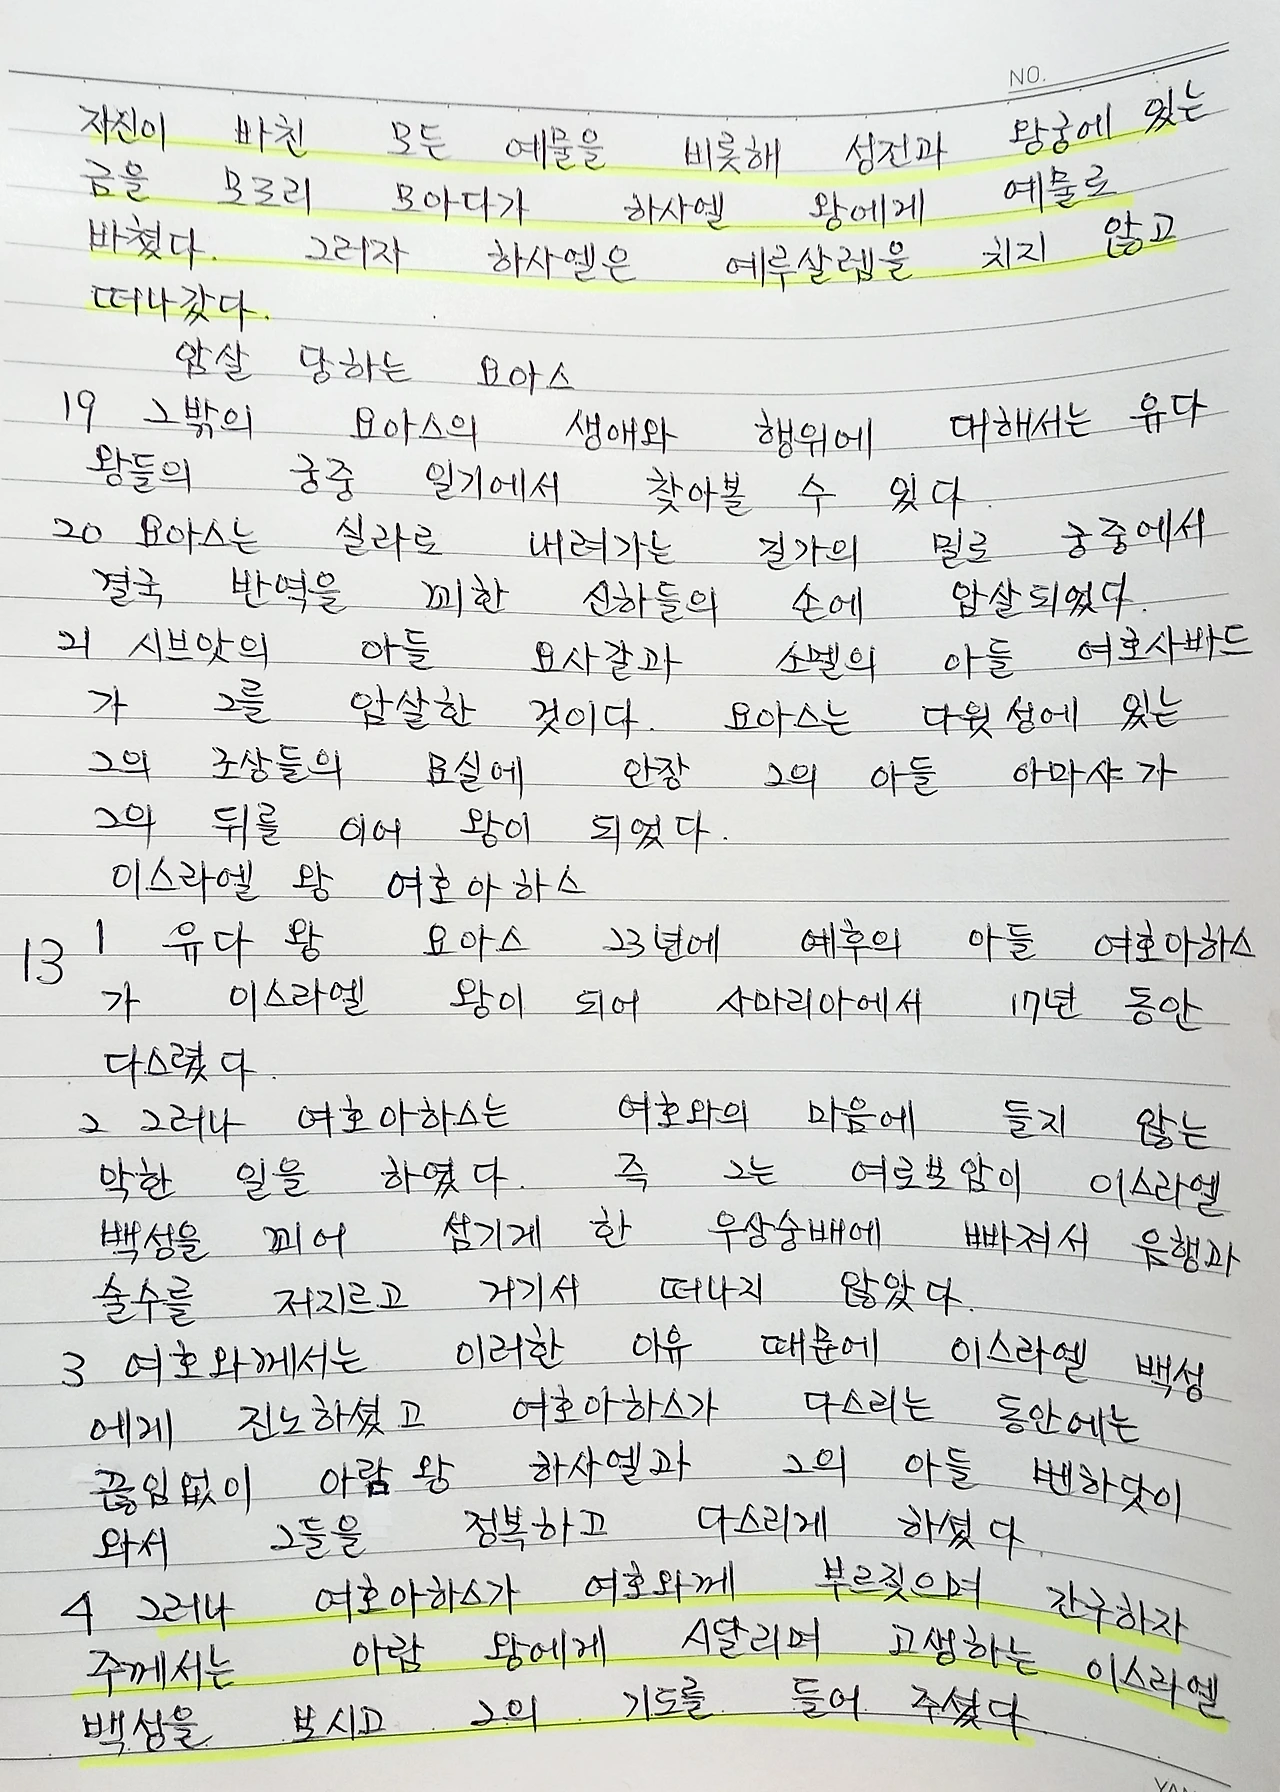 NO.
자신이 바친 모든 예물을 비롯해 성전과 왕궁에 있는
금을 모조리 모아다가 하사엘 왕에게 예물로
바쳤다. 그러자 하사엘은 예루살렘을 치지 않고
떠나갔다.
암살 당하는 요아스
19 그밖의 요아스의 생애와 행위에 대해서는 유다
왕들의 궁중 일기에서 찾아볼 수 있다.
20 요아스는 실라로 내려가는 길가의 밀로 궁중에서
결국 반역을 꾀한 신하들의 손에 암살되었다.
21 시므앗의 아들 요사갈과 소멜의 아들 여호사바드
가 그를 암살한 것이다. 요아스는 다윗성에 있는
그의 조상들의 묘실에 안장 그의 아들 아마샤가
그의 뒤를 이어 왕이 되었다.
이스라엘 왕 여호아하스
13 1 유다 왕 요아스 23년에 예후의 아들 여호아하스
가 이스라엘 왕이 되어 사마리아에서 17년 동안
다스렸다.
2 그러나 여호아하스는 여호와의 마음에 들지 않는
악한 일을 하였다. 즉 그는 여로보암이 이스라엘
백성을 꾀어 섬기게 한 우상숭배에 빠져서 음행과
술수를 저지르고 거기서 떠나지 않았다.
3 여호와께서는 이러한 이유 때문에 이스라엘 백성
에게 진노하셨고 여호아하스가 다스리는 동안에는
끊임없이 아람왕 하사엘과 그의 아들 벤하닷이
와서 그들을 정복하고 다스리게 하셨다.
4 그러나 여호아하스가 여호와께 부르짖으며 간구하자
주께서는 아람 왕에게 시달리며 고생하는 이스라엘
백성을 보시고 그의 기도를 들어 주셨다.